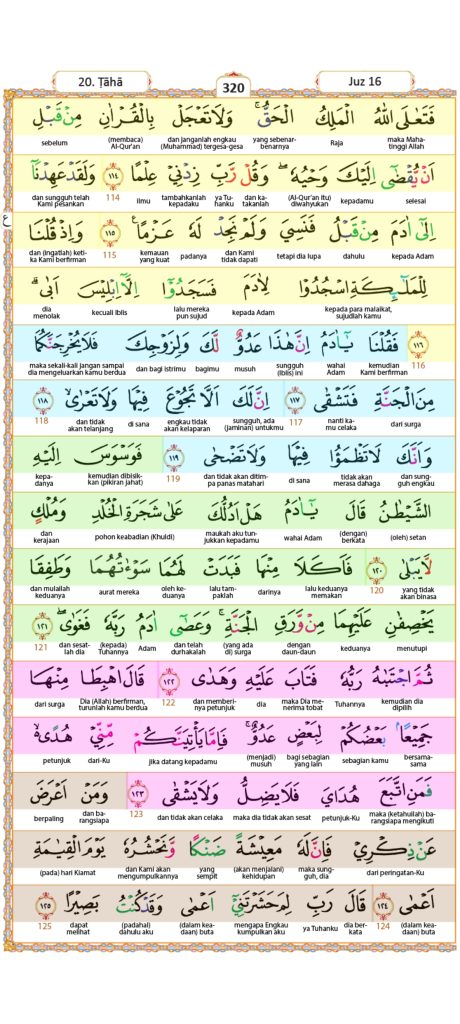 20. Ṭāhā
320
Juz 16
فَتَعٰلَى اللّٰهُ الْمَلِكُ الْحَقُّۚ وَلَا تَعْجَلْ بِالْقُرْاٰنِ مِنْ قَبْلِ
maka Maha-tinggi Allah Raja yang sebenar-benarnya dan janganlah engkau (Muhammad) tergesa-gesa (membaca) Al-Qur'an sebelum
اَنْ يُّقْضٰٓى اِلَيْكَ وَحْيُهٗ ۖ وَقُلْ رَّبِّ زِدْنِيْ عِلْمًا ١١٤ وَلَقَدْ عَهِدْنَآ
selesai kepadamu (Al-Qur'an itu) diwahyukan dan ka-takanlah ya Tu-hanku tambahkanlah kepadaku ilmu 114 dan sungguh telah Kami pesankan
ع
اِلٰٓى اٰدَمَ مِنْ قَبْلُ فَنَسِيَ وَلَمْ نَجِدْ لَهٗ عَزْمًا ࣖ ١١٥ وَاِذْ قُلْنَا
kepada Adam dahulu tetapi dia lupa dan Kami tidak dapati padanya kemauan yang kuat 115 dan (ingatlah) keti-ka Kami berfirman
لِلْمَلٰۤىِٕكَةِ اسْجُدُوْا لِاٰدَمَ فَسَجَدُوْٓا اِلَّآ اِبْلِيْسَ اَبٰى ۗ
kepada para malaikat, sujudlah kamu kepada Adam lalu mereka pun sujud kecuali Iblis dia menolak
١١٦ فَقُلْنَا يٰٓاٰدَمُ اِنَّ هٰذَا عَدُوٌّ لَّكَ وَلِزَوْجِكَ فَلَا يُخْرِجَنَّكُمَا
116 kemudian Kami berfirman wahai Adam sungguh (Iblis) ini musuh bagimu dan bagi istrimu maka sekali-kali jangan sampai dia mengeluarkan kamu berdua
مِنَ الْجَنَّةِ فَتَشْقٰى ١١٧ اِنَّ لَكَ اَلَّا تَجُوْعَ فِيْهَا وَلَا تَعْرٰىۙ ١١٨
dari surga nanti ka-mu celaka 117 sungguh, ada (jaminan) untukmu engkau tidak akan kelaparan di sana dan tidak akan telanjang 118
وَاَنَّكَ لَا تَظْمَؤُا فِيْهَا وَلَا تَضْحٰى ١١٩ فَوَسْوَسَ اِلَيْهِ
dan sung-guh engkau tidak akan merasa dahaga di sana dan tidak akan ditim-pa panas matahari 119 kemudian dibisik-kan (pikiran jahat) kepa-danya
الشَّيْطٰنُ قَالَ يٰٓاٰدَمُ هَلْ اَدُلُّكَ عَلٰى شَجَرَةِ الْخُلْدِ وَمُلْكٍ
(oleh) setan (dengan) berkata wahai Adam maukah aku tun-jukkan kepadamu pohon keabadian (Khuldi) dan kerajaan
لَّا يَبْلٰى ١٢٠ فَاَكَلَا مِنْهَا فَبَدَتْ لَهُمَا سَوْءٰتُهُمَا وَطَفِقَا
yang tidak akan binasa 120 lalu keduanya memakan darinya lalu tam-paklah oleh ke-duanya aurat mereka dan mulailah keduanya
يَخْصِفٰنِ عَلَيْهِمَا مِنْ وَّرَقِ الْجَنَّةِۚ وَعَصٰٓى اٰدَمُ رَبَّهٗ فَغَوٰىۖ ١٢١
menutupi keduanya dengan daun-daun (yang ada di) surga dan telah durhakalah Adam (kepada) Tuhannya dan sesat-lah dia 121
ثُمَّ اجْتَبٰهُ رَبُّهٗ فَتَابَ عَلَيْهِ وَهَدٰى ١٢٢ قَالَ اهْبِطَا مِنْهَا
kemudian dia dipilih Tuhannya maka Dia me-nerima tobat dia dan memberi-nya petunjuk 122 Dia (Allah) berfirman, turunlah kamu berdua dari surga
جَمِيْعًاۢ بَعْضُكُمْ لِبَعْضٍ عَدُوٌّ ۚ فَاِمَّا يَأْتِيَنَّكُمْ مِّنِّيْ هُدًى ەۙ
bersama-sama sebagian kamu bagi sebagian yang lain (menjadi) musuh jika datang kepadamu dari-Ku petunjuk
فَمَنِ اتَّبَعَ هُدَايَ فَلَا يَضِلُّ وَلَا يَشْقٰى ١٢٣ وَمَنْ اَعْرَضَ
maka (ketahuilah) ba-rangsiapa mengikuti petunjuk-Ku maka dia tidak akan sesat dan tidak akan celaka 123 dan ba-rangsiapa berpaling
عَنْ ذِكْرِيْ فَاِنَّ لَهٗ مَعِيْشَةً ضَنْكًا وَّنَحْشُرُهٗ يَوْمَ الْقِيٰمَةِ
dari peringatan-Ku maka sung-guh, dia (akan menjalani) kehidupan yang sempit dan Kami akan mengumpulkannya (pada) hari Kiamat
اَعْمٰى ١٢٤ قَالَ رَبِّ لِمَ حَشَرْتَنِيْٓ اَعْمٰى وَقَدْ كُنْتُ بَصِيْرًا ١٢٥
(dalam kea-daan) buta 124 dia ber-kata ya Tuhanku mengapa Engkau kumpulkan aku (dalam kea-daan) buta (padahal) dahulu aku dapat melihat 125